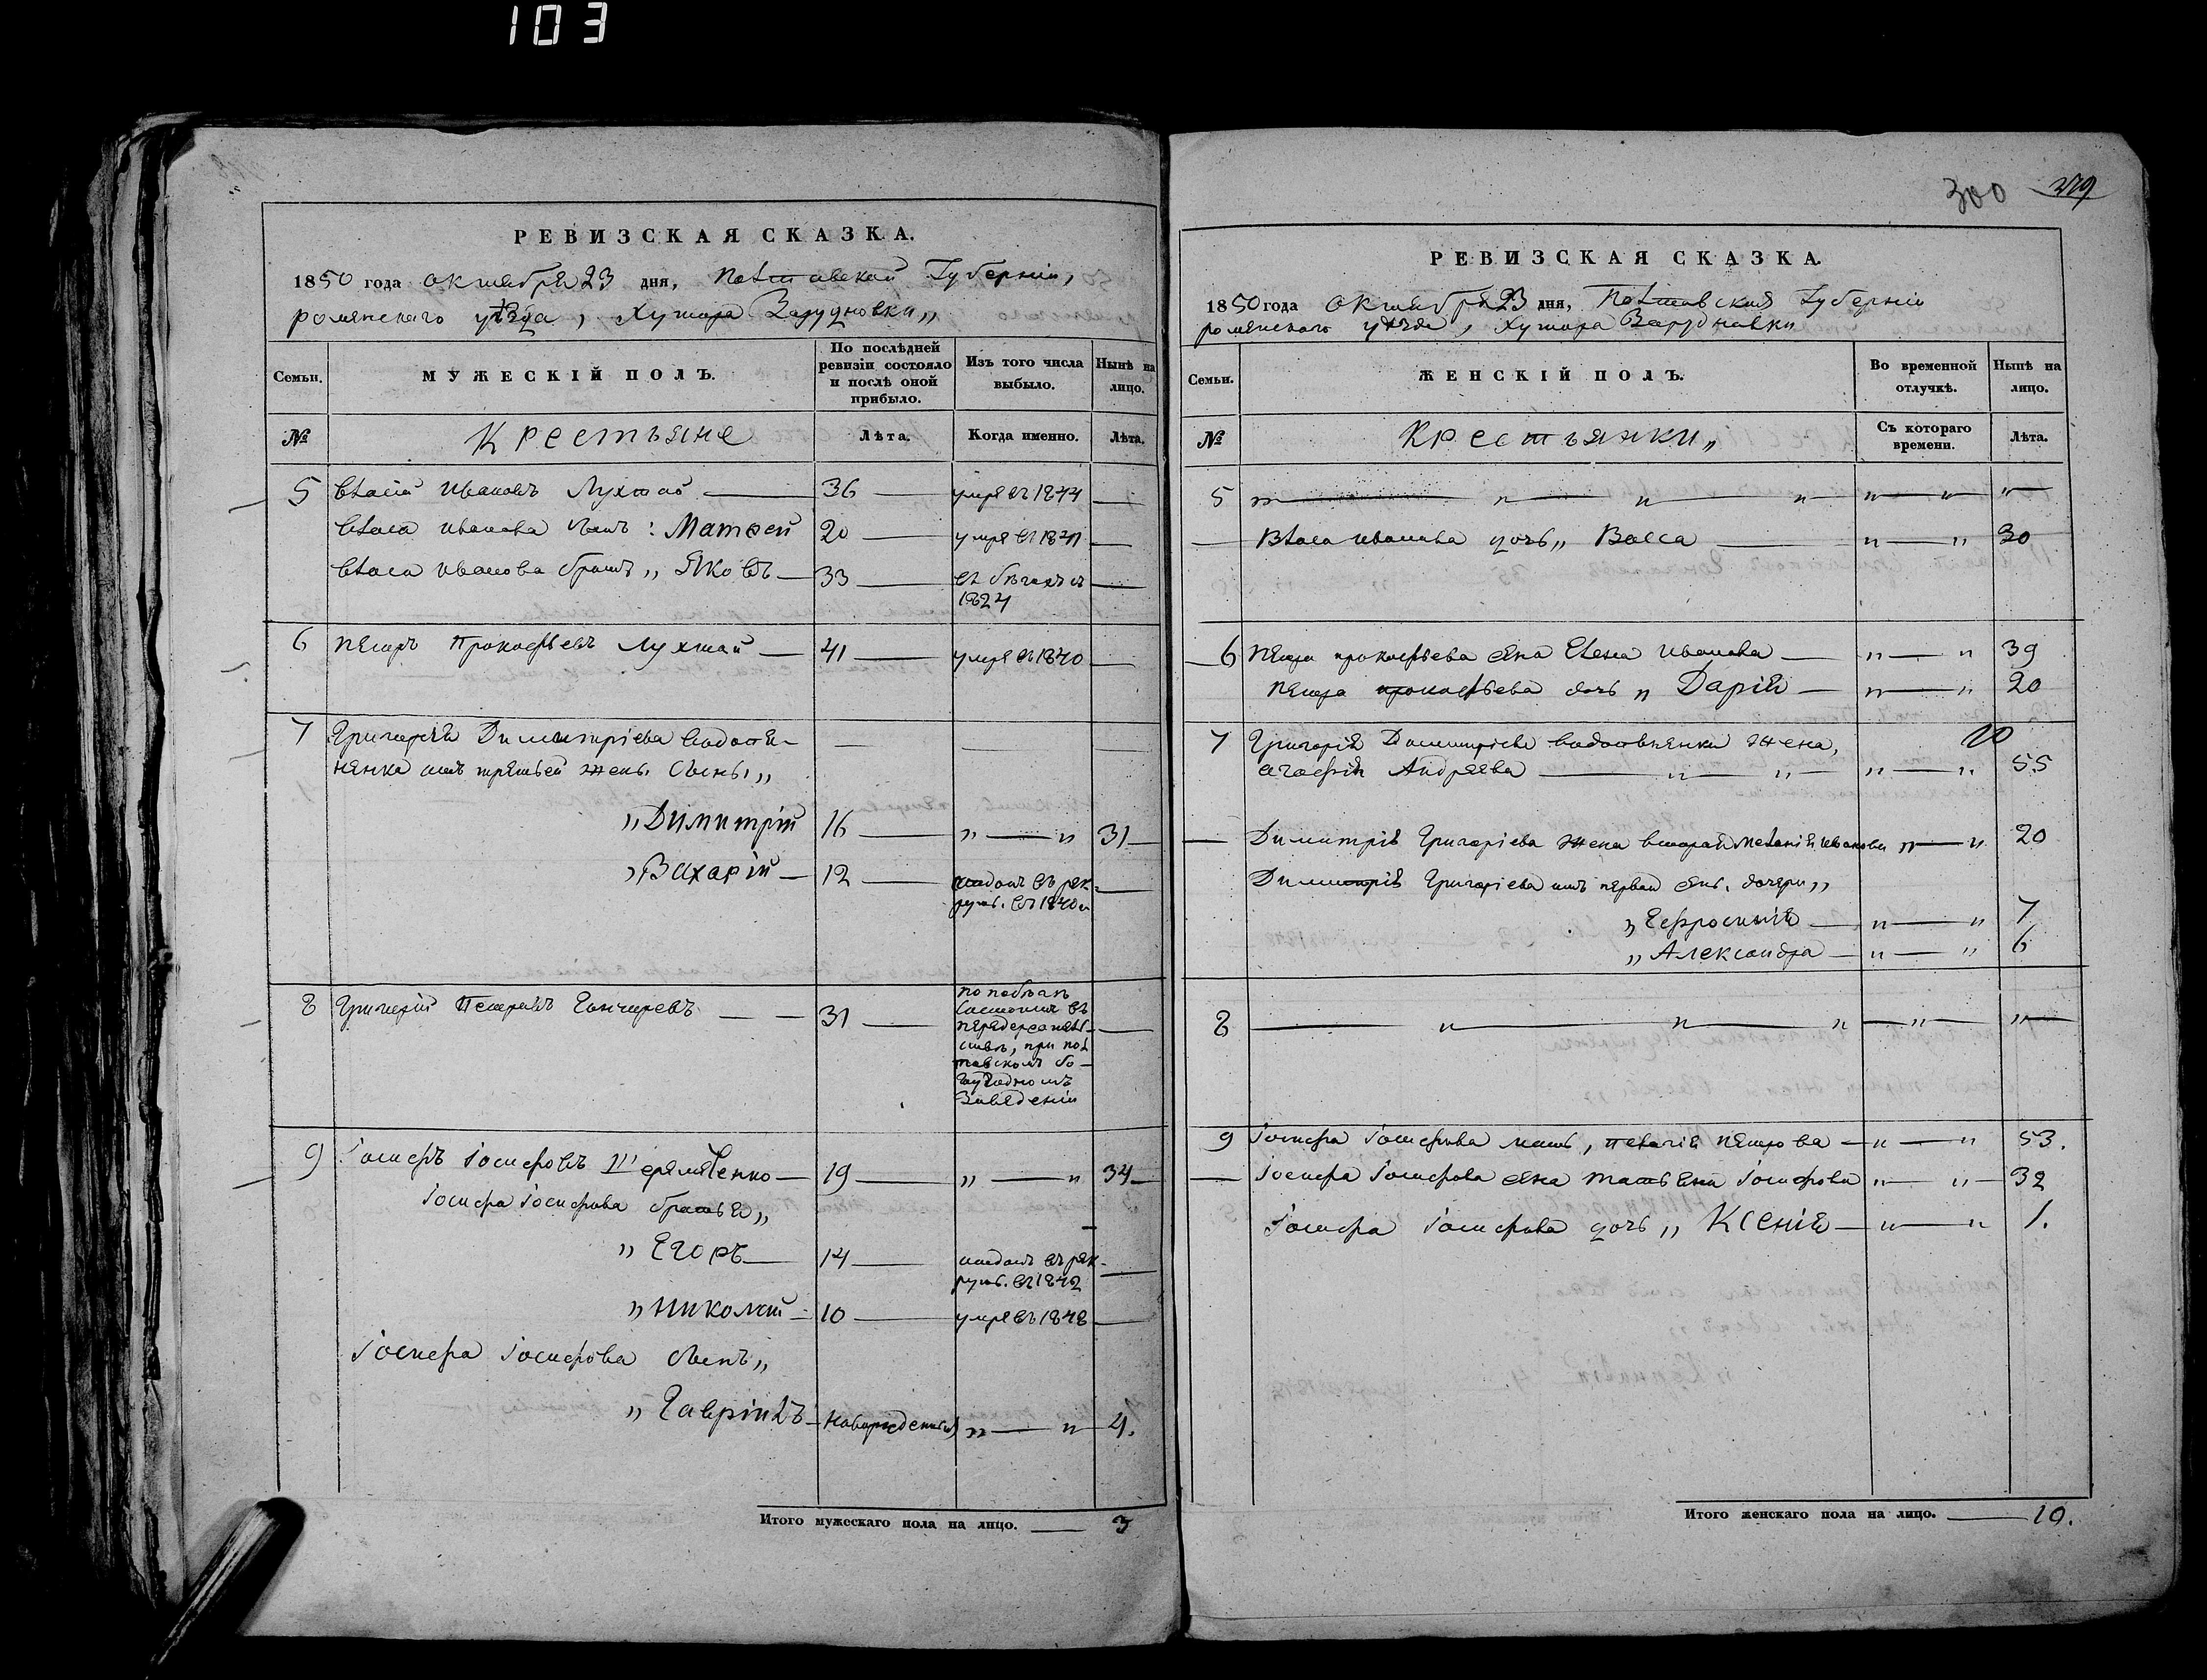 103
РЕВИЗСКАЯ СКАЗКА.
1850 года октября 23 дня, Полтавской Губерніи,
роменскаго уѣзда, Хутора Зарудновки„
Семьи.
МУЖЕСКІЙ ПОЛЪ.
По послѣдней ревизіи состояло и послѣ оной прибыло.
Изъ того числа выбыло.
Нынѣ на лицо.
№
Крестьяне
Лѣта.
Когда именно.
Лѣта.
5 Власій Ивановъ Лухтай — 36 — умре въ 1844 —
Власа Иванова сынъ: Матѳей 20 — умре въ —
Власа Иванова братъ „ Яковъ — 33 — въ бѣгахъ съ 1824 —
6 Петръ Прокофьевъ Лухтай — 41 — умре въ 1840 —
7 Григорія Димитріева
отъ третьей жены сыны „
„ Димитрій 16 — „ — „ 31 —
„ Захарій — 12 — отданъ въ рек-
рут. въ 1840 —
8 Григорій Петровъ Гончаровъ — — 31 — по побѣгѣ
состоитъ въ
при пол-
тавскомъ бо-
гоугодномъ
Заведеніи
9 Іосифъ Іосифовъ Шеремѣченко — 19 — „ — „ 34 —
Іосифа Іосифова братья „
„ Егоръ — 14 — отданъ въ рек-
рут. въ 1842 —
„ Николай — 10 — умре въ 1848 —
Іосифа Іосифова сынъ „
„ Гавріилъ — новорожденный „ — „ 4.
Итого мужескаго пола на лицо. — 3
300 379
РЕВИЗСКАЯ СКАЗКА.
1850 года октября 23 дня, Полтавской Губерніи
роменскаго уѣзда, Хутора Зарудновки
Семьи.
ЖЕНСКІЙ ПОЛЪ.
Во временной отлучкѣ.
Нынѣ на лицо.
№
Крестьянки „
Съ котораго времени.
Лѣта.
5 „ — „ — „ „ „ — „ „
— Власа Иванова дочь „ Васса — „ — „ 30
6 Петра Прокофьева жена Елена Иванова — „ — „ 39
Петра прокофьева дочь „ Дарія — „ — „ 20
7 Григорія Димитріева жена,
Агафія Андреева — „ „ — „ — „ 55
— Димитрія Григоріева жена вторая Меланія Иванова „ — „ 20
Димитрія Григоріева отъ первой жен. дочери „
„ Еефросинія — „ — „ 7
„ Александра — „ — „ 6
8 — „ — „ — „ — „ — „
9 Іосифа Іосифова мать, пелагія петрова — „ — „ 53.
— Іосифа Іосифова жена татьяна Іосифова „ — „ — 32
Іосифа Іосифова дочь „ Ксенія — „ — „ 1.
Итого женскаго пола на лицо. — 10.